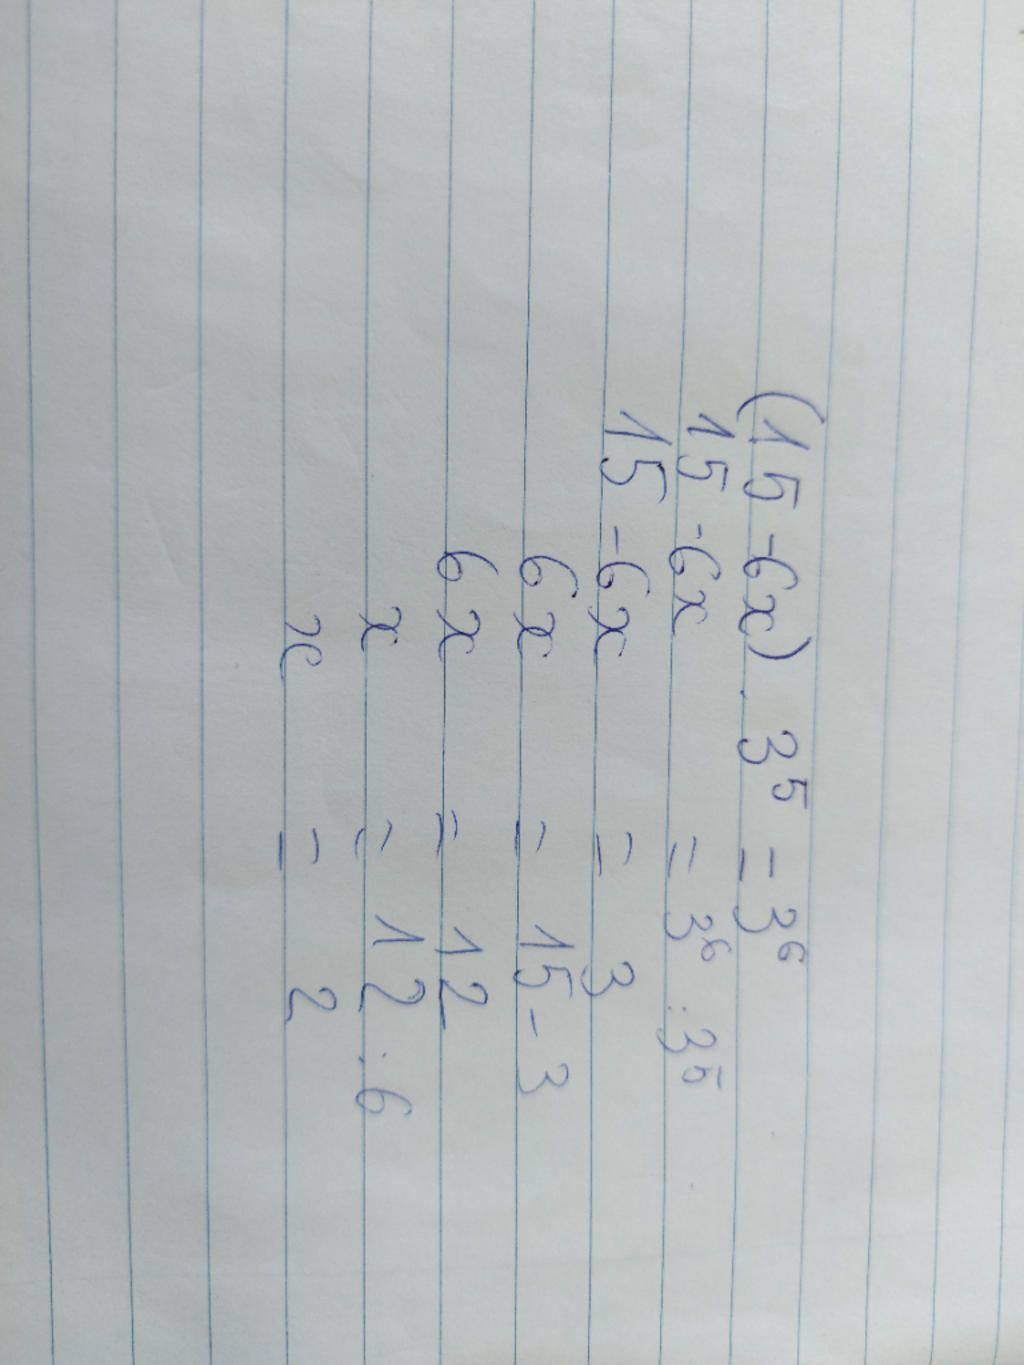 (15 - 6x) . 3⁵ = 3⁶
15 - 6x = 3⁶ : 3⁵
15 - 6x = 3
6x = 15 - 3
6x = 12
x = 12 : 6
x = 2